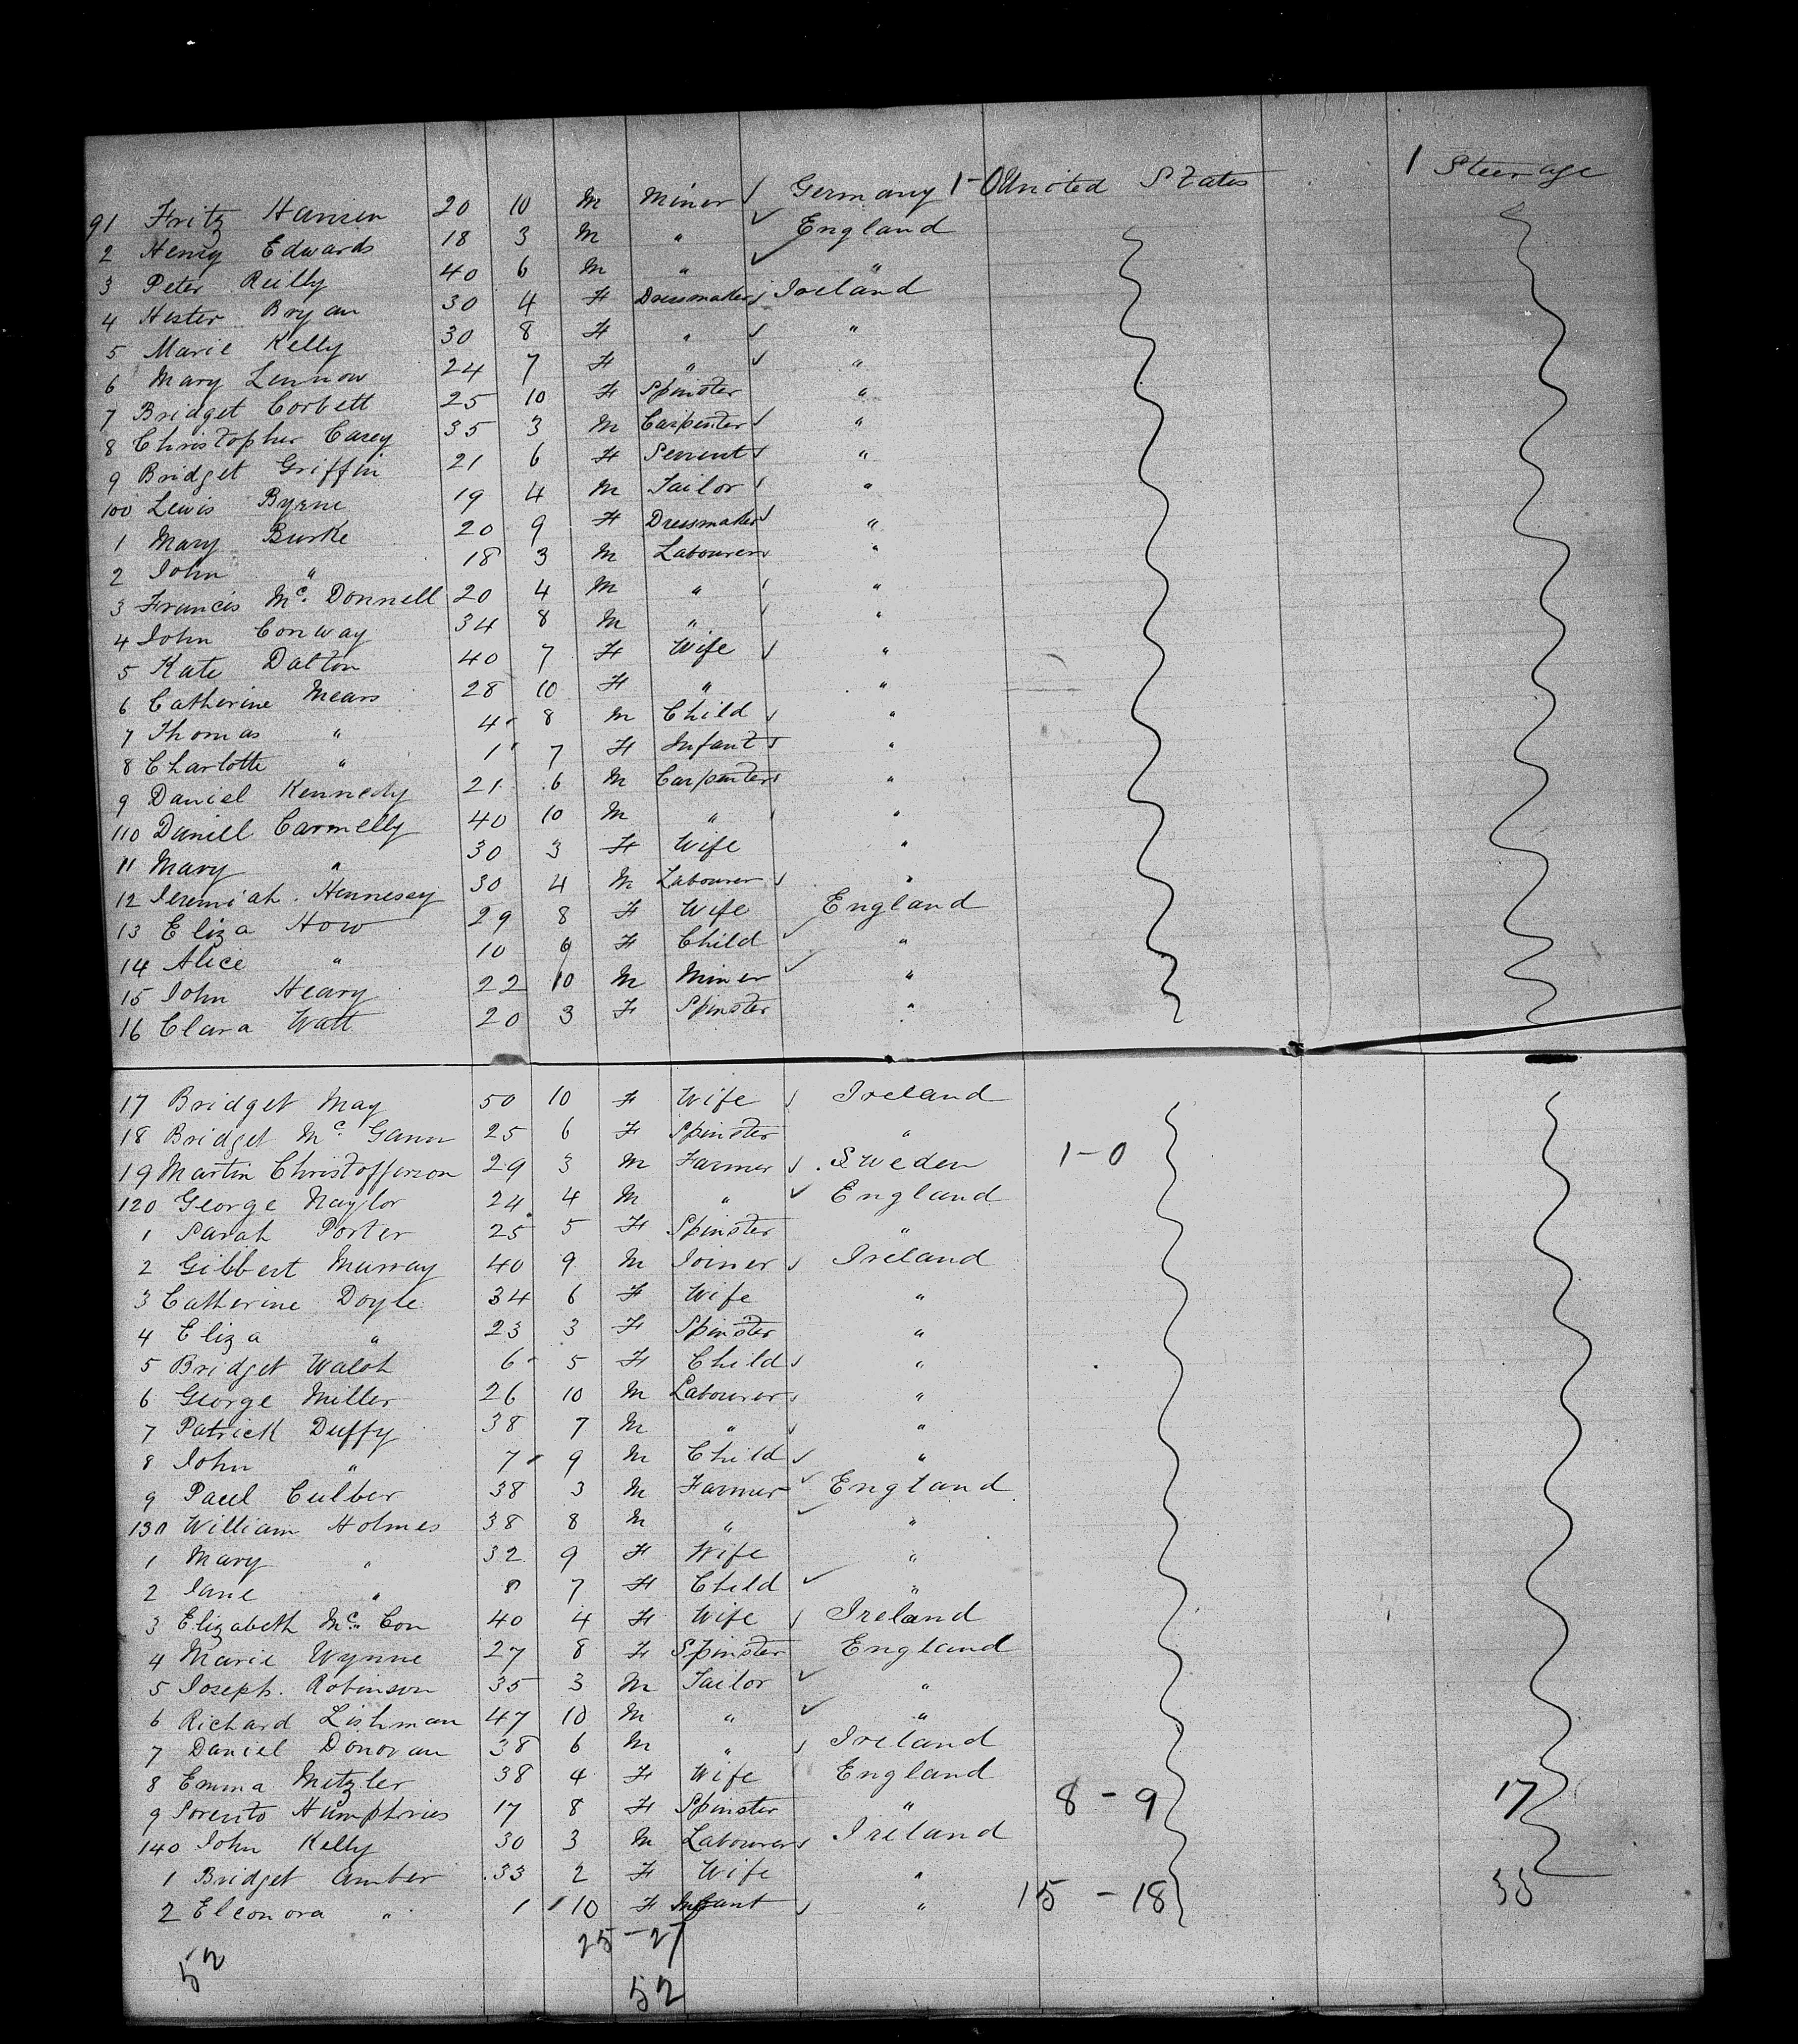 91 Fritz Hansen 20 10 M Miner Germany 1-0 United States 1 Steerage
2 Henry Edwards 18 3 M " England
3 Peter Reilly 40 6 M " "
4 Hester Bryan 30 4 F Dressmaker Ireland
5 Marie Kelly 30 8 F " "
6 Mary Lennow 24 7 F " "
7 Bridget Corbett 25 10 F Spinster "
8 Christopher Casey 35 3 M Carpenter "
9 Bridget Griffin 21 6 F Servent "
100 Lewis Byrne 19 4 M Tailor "
1 Mary Burke 20 9 F Dressmaker "
2 John " 18 3 M Labourer "
3 Francis Mc. Donnell 20 4 M " "
4 John Conway 34 8 M " "
5 Kate Dalton 40 7 F Wife "
6 Catherine Mears 28 10 F " "
7 Thomas " 4 8 M Child "
8 Charlotte " 1 7 F Infant "
9 Daniel Kennedy 21 6 M Carpenter "
110 Daniel Carmelly 40 10 M " "
11 Mary " 30 3 F Wife "
12 Jeremiah Hennessey 30 4 M Labourer "
13 Eliza How 29 8 F Wife England
14 Alice " 10 6 F Child "
15 John Heary 22 10 M Miner "
16 Clara Watt 20 3 F Spinster "
17 Bridget May 50 10 F Wife Ireland
18 Bridget Mc. Gann 25 6 F Spinster "
19 Martin Christofferson 29 3 M Farmer Sweden 1-0
120 George Naylor 24 4 M " England
1 Sarah Porter 25 5 F Spinster "
2 Gilbert Murray 40 9 M Joiner Ireland
3 Catherine Doyle 34 6 F Wife "
4 Eliza " 23 3 F Spinster "
5 Bridget Walsh 6 5 F Child "
6 George Miller 26 10 M Labourer "
7 Patrick Duffy 38 7 M " "
8 John " 7 9 M Child "
9 Paul Culber 38 3 M Farmer England
130 William Holmes 38 8 M " "
1 Mary " 32 9 F Wife "
2 Jane " 8 7 F Child "
3 Elizabeth Mc. Con 40 4 F Wife Ireland
4 Marie Wynne 27 8 F Spinster England
5 Joseph Robinson 35 3 M Tailor "
6 Richard Lishman 47 10 M " "
7 Daniel Donovan 38 6 M " Ireland
8 Emma Mitzler 38 4 F Wife England
9 Sorento Humphries 17 8 F Spinster " 8-9 17
140 John Kelly 30 3 M Labourer Ireland
1 Bridget Amber 33 2 F Wife "
2 Eleonora " 1 10 F Infant " 15-18 33
25-27
52 52